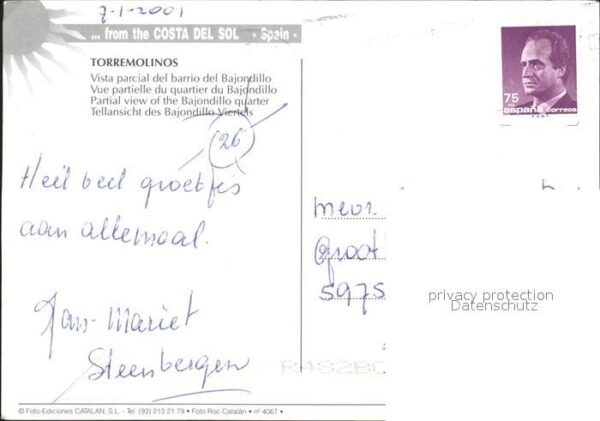 7-1-2001
... from the COSTA DEL SOL • Spain •
TORREMOLINOS
Vista parcial del barrio del Bajondillo
Vue partielle du quartier du Bajondillo
Partial view of the Bajondillo quarter
Tellansicht des Bajondillo Viertels
26
75
españa correos
Heel veel groetjes
aan allemaal.
Jan-Mariet
Steenbergen
mevr.
Groot
5975
privacy protection
Datenschutz
© Foto-Ediciones CATALAN, S.L. - Tel. (93) 213 21 79 • Foto Roc Catalán • nº 406T •